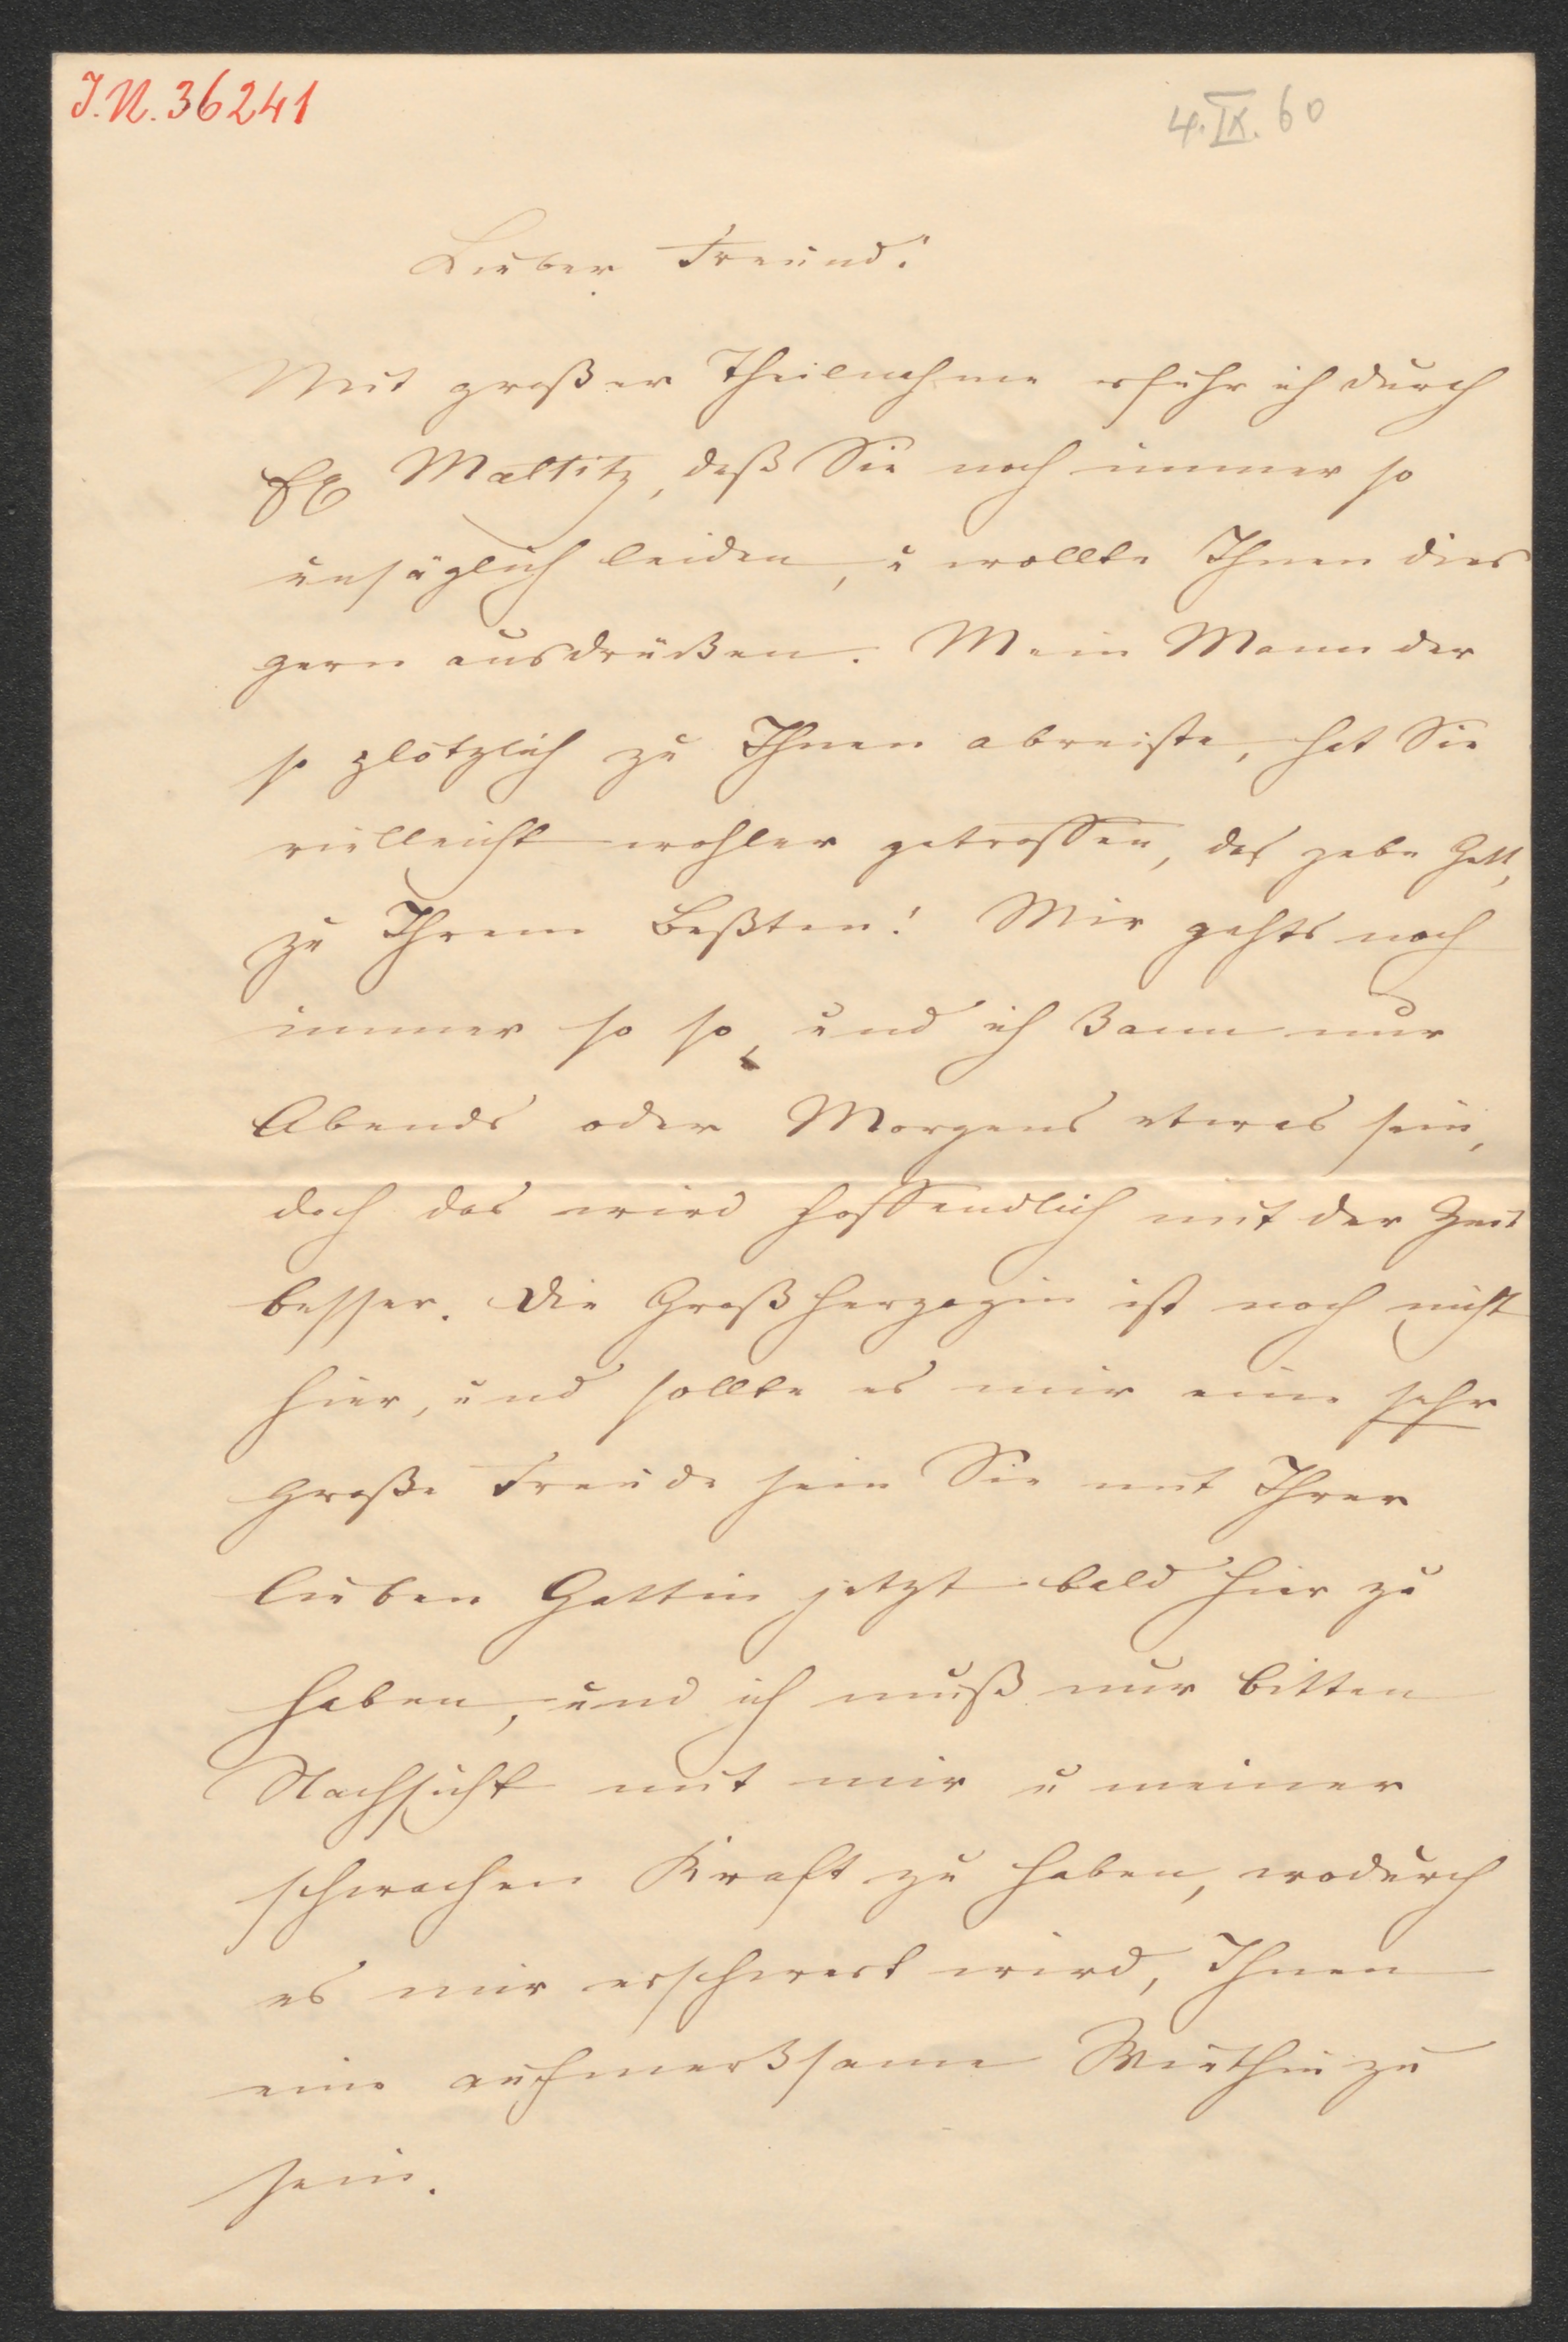 J.N. 36241
4. IX. 60
Lieber Freund!
Mit großer Theilnahme erfuhr ich durch
Maltitz, daß Sie noch immer so
unsäglich leiden, u wollte Ihnen dies
gern ausdrücken. Mein Mann der
so plötzlich zu Ihnen abreiste, hat Sie
vielleicht wohler getroffen, das gebe Gott,
zu Ihrem Beßten! Mir gehts noch
immer so so, und ich kann nur
Abends oder Morgens etwas sein,
doch das wird hoffendlich mit der Zeit
besser. Die Großherzogin ist noch nicht
hier, und sollte es mir eine sehr
große Freude sein Sie mit Ihrer
lieben Gattin jetzt bald hier zu
haben, und ich muß nur bitten
Nachsicht mit mir u meiner
schwachen Kraft zu haben, wodurch
es mir erschwert wird, Ihnen
eine aufmerksame Wirthin zu
sein.